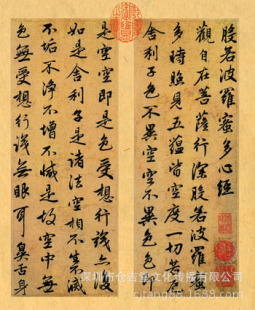 般若波羅蜜多心經
觀自在菩薩行深般若波羅蜜
多時照見五蘊皆空度一切苦厄
舍利子色不異空空不異色色即
是空空即是色受想行識亦復
如是舍利子是諸法空相不生不滅
不垢不淨不增不減是故空中無
色無受想行識無眼耳鼻舌身
深圳市仓古望文化传播有限公司